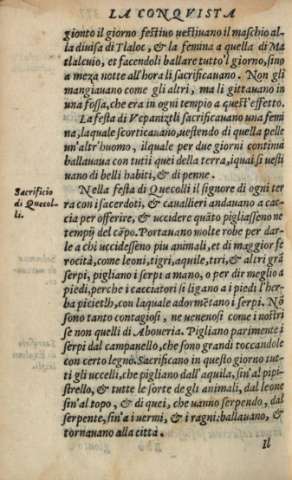 LA CONQVISTA
gionto il giorno festiuo uestiuano il maschio al-
la diuisa di Tlaloc, & la femina a quella di Ma
tlalcuio, et facendoli ballare tutto 'l giorno, sino
a meza notte all'hora li sacrificauano. Non gli
mangiauano come gli altri, ma li gittauano in
una fossa, che era in ogni tempio a quest'effetto.
La festa di Vcpaniztli sacrificauano una femi
na, laquale scorticauano, uestendo di quella pelle
un'altr'huomo, ilquale per due giorni continui
ballauaua con tutii quei della terra, iquai si uesti
uano di belli habiti, & di penne.
Sacrificio
di Quecol-
li.
Nella festa di Quecolli il signore di ogni ter
ra con i sacerdoti, & cauallieri andauano a cac-
cia per offerire, & uccidere quāto pigliasseno ne
tempÿ del cāpo. Portauano molte robe per dar-
le a chi uccidesseno piu animali, et di maggior fe
rocità, come leoni, tigri, aquile, ttri, & altri grā
serpi, pigliano i serpi a mano, o per dir meglio a
piedi, perche i cacciatori si ligano a i piedi l'her-
ba picietlh, con laquale adormētano i serpi. Nō
sono tanto contagiosi, ne uenenosi come i nostri
se non quelli di Aboueria. Pigliano parimente i
serpi dal campanello, che sono grandi toccandole
con certo legno. Sacrificano in questo giorno tut-
ti gli uccelli, che pigliano dall'aquila, sin'al pipi-
strello, & tutte le sorte de gli animali, dal leone
sin'al topo, & di quei, che uanno serpendo, dal
serpente, sin'a i uermi, & i ragni: ballauano, &
tornauano alla città.
Il